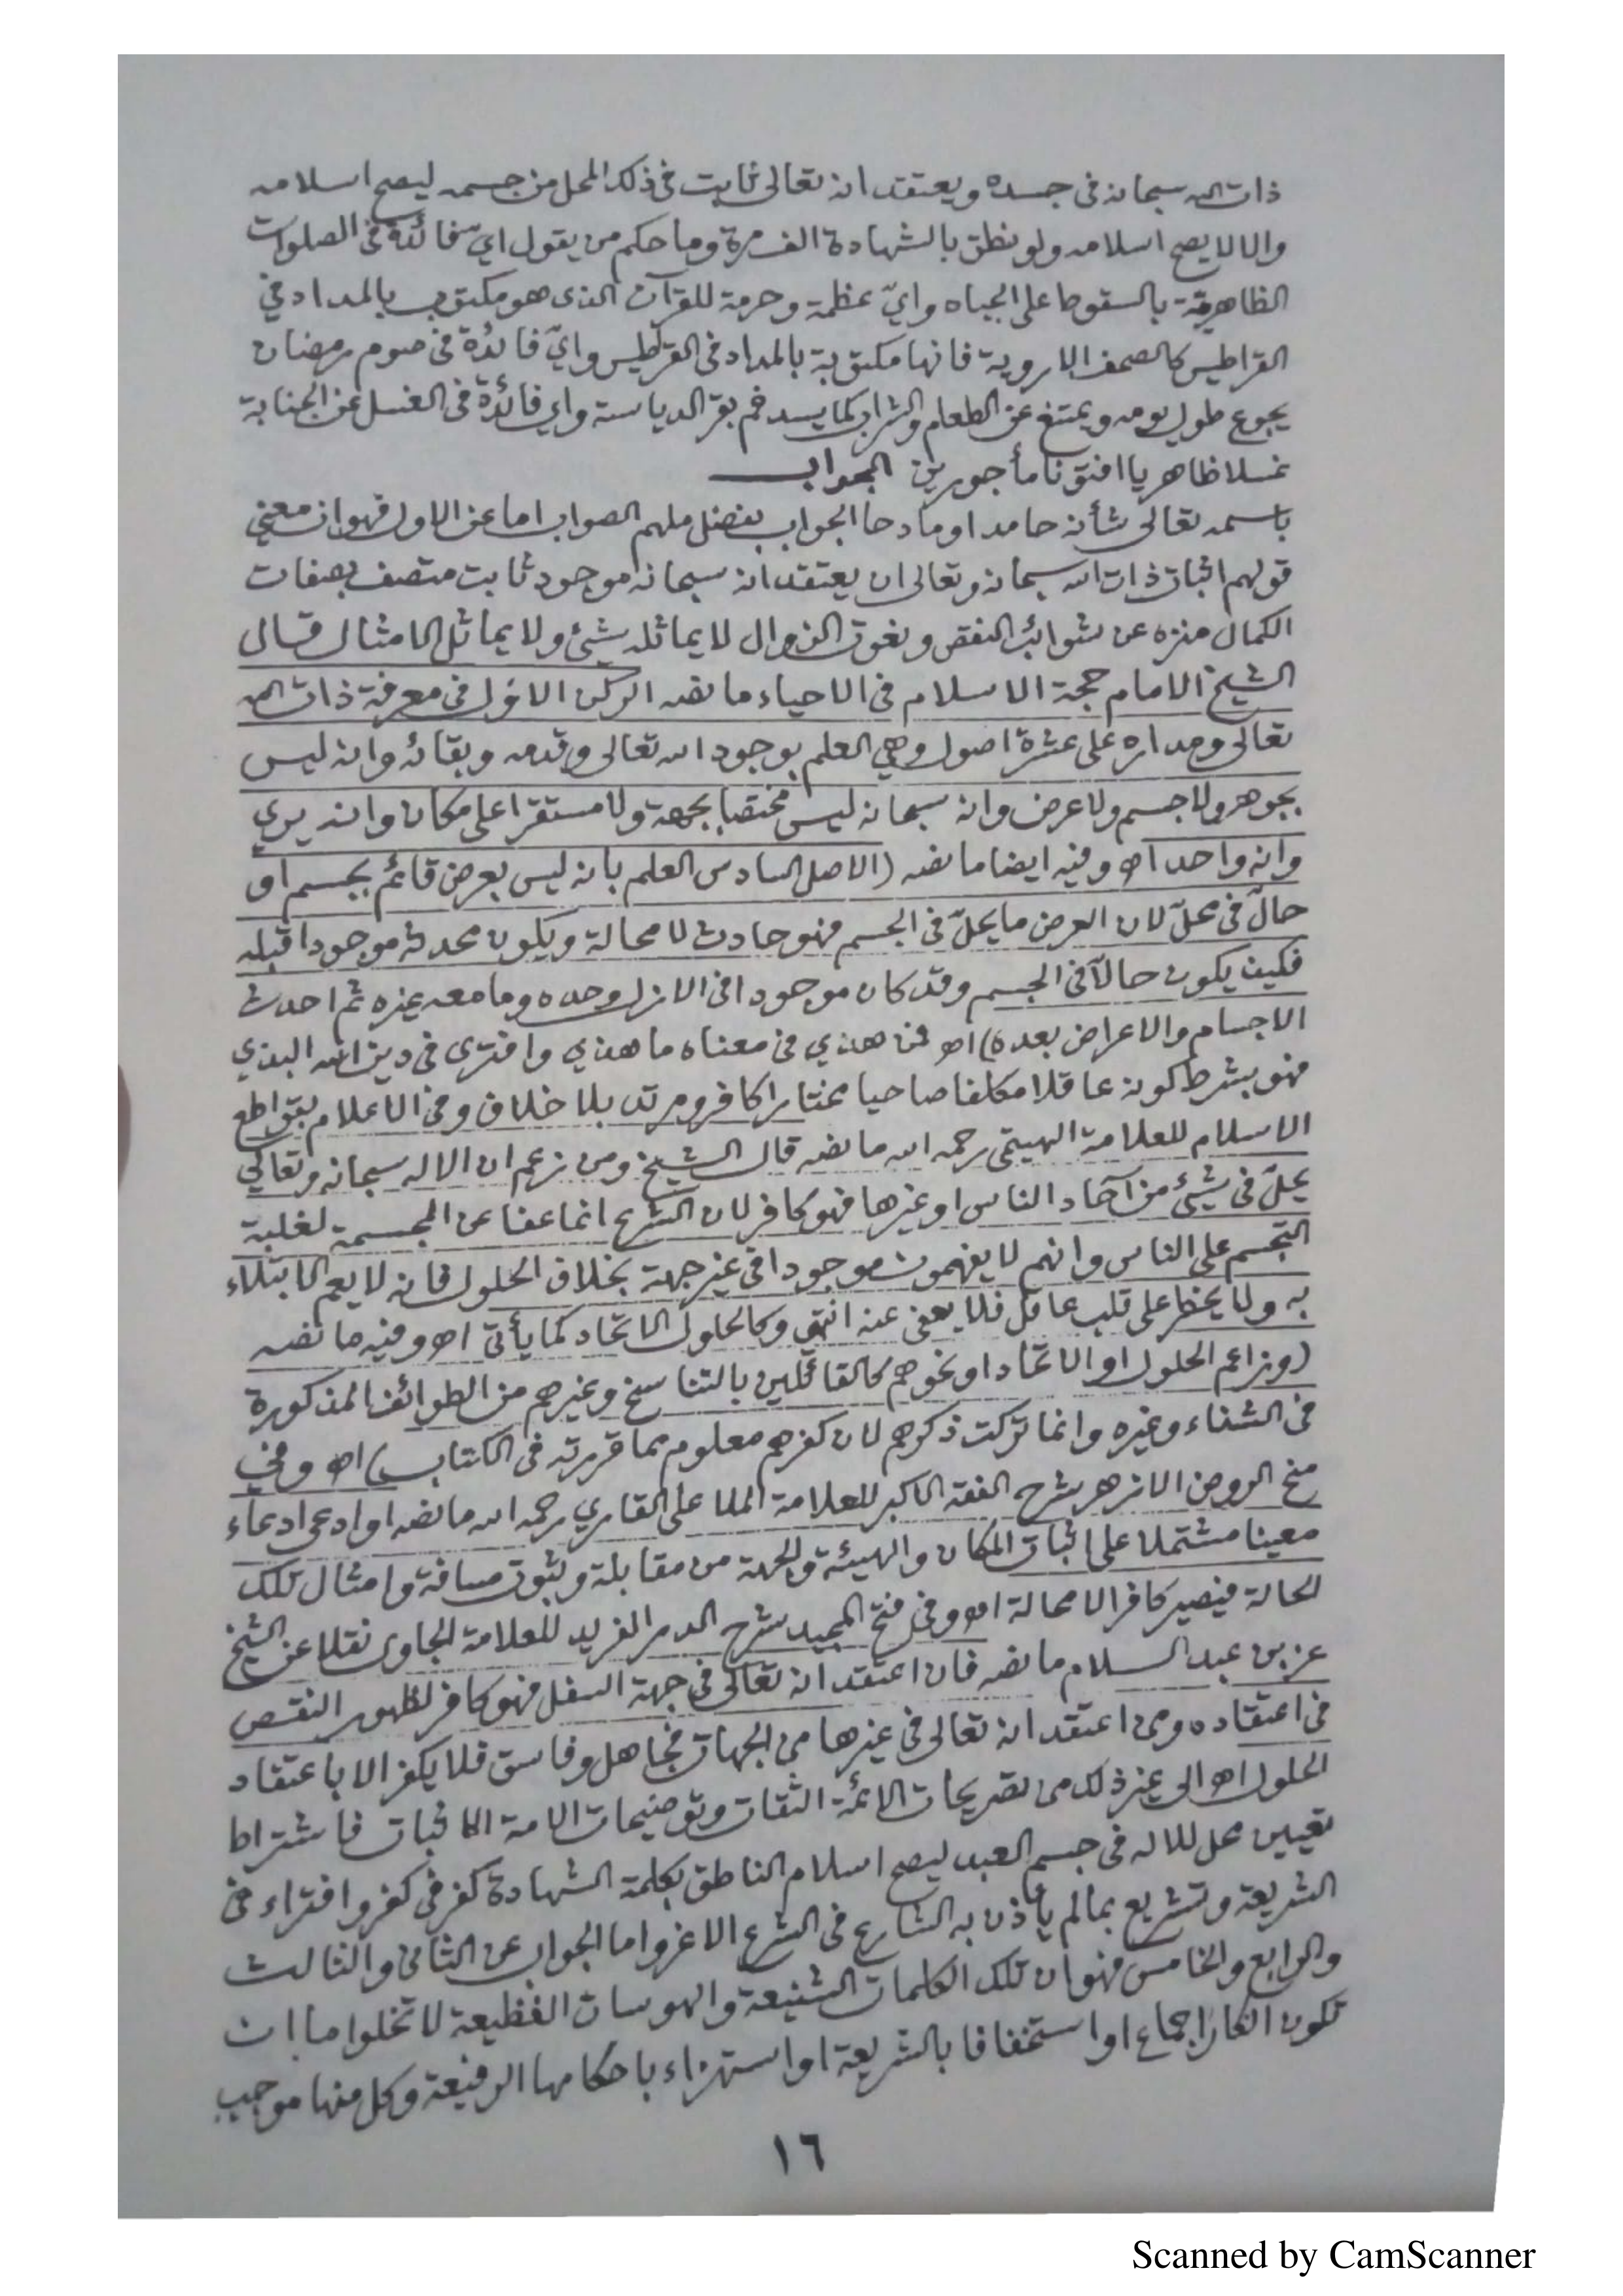 ذات الله سبحانه في جسده ويعتقد انه تعالى ثابت في ذلك المحل من جسمه ليصح اسلامه
والا لا يصح اسلامه ولو نطق بالشهادة الف مرة وما حكم من يقول اي فائدة في الصلوات
الظاهرية بالسقوط على الجباه وايّ عظمة وحرمة للقرآن الذى هو مكتوب بالمداد في
القراطيس كالصحف الاروبية فانها مكتوبة بالمداد في القرطيس وايّ فائدة في صوم رمضان
يجوع طول يومه ويمتنع عن الطعام والشراب كما يسد فم بقر الدياسة واي فائدة في الغسل عن الجنابة
غسلا ظاهريا افتونا مأجورين الجواب
باسمه تعالى شأنه حامدا ومادحا الجواب بفضل ملهم الصواب اما عن الاول فهو ان معنى
قولهم اثبات ذات الله سبحانه وتعالى ان يعتقد انه سبحانه موجود ثابت متصف بصفات
الكمال منزه عن شوائب النقص ونعوت الزوال لا يماثله شيئ ولا يماثل الامثال قال
الشيخ الامام حجة الاسلام في الاحياء ما نصه الركن الاوّل في معرفة ذات الله
تعالى ومداره على عشرة اصول وهي العلم بوجود الله تعالى وقدمه وبقائه وانه ليس
بجوهر ولا جسم ولا عرض وانه سبحانه ليس مختصا بجهة ولا مستقرا على مكان وانه يرى
وانه واحد اه وفيه ايضا ما نصه (الاصل السادس العلم بانه ليس بعرض قائم بجسم او
حالّ في محلّ لان العرض ما يحلّ في الجسم فهو حادث لا محالة ويكون محدثه موجودا قبله
فكيف يكون حالّا في الجسم وقد كان موجودا في الازل وحده وما معه غيره ثم احدث
الاجسام والاعراض بعده) اه فمن هذي في معناه ما هذي وافترى في دين الله البذي
فهو بشرط كونه عاقلا مكلفا صاحيا مختارا كافر ومرتد بلا خلاف وفي الاعلام بقواطع
الاسلام للعلامة الهيتمي رحمه الله ما نصه قال الشيخ ومن زعم ان الاله سبحانه وتعالى
يحلّ في شيئ من آحاد الناس او غيرها فهو كافر لان الشرع انما عفا عن المجسمة لغلبة
التجسم على الناس وانهم لا يفهمون موجودا في غير جهة بخلاف الحلول فانه لا يعم الابتلاء
به ولا يخطر على قلب عاقل فلا يعفى عنه انتهى وكالحلول الاتحاد كما يأتي اه وفيه ما نصه
(وزاعم الحلول او الاتحاد او نحوهم كالقائلين بالتناسخ وغيرهم من الطوائف المذكورة
في الشفاء وغيره وانما تركت ذكرهم لان كفرهم معلوم مما قررته في الكتاب) اه وفي
منح الروض الازهر شرح الفقه الاكبر للعلامة الملا على القاري رحمه الله ما نصه او ادعى ادعاء
معينا مشتملا على اثبات المكان والهيئة والجهة من مقابلة وثبوت مسافة وامثال تلك
الحالة فيصير كافرا لا محالة اه وفي فتح المجيد شرح الدر الفريد للعلامة الجاوى نقلا عن الشيخ
عز بن عبد السلام ما نصه فان اعتقد انه تعالى في جهة السفل فهو كافر لظهور النقص
في اعتقاده ومن اعتقد انه تعالى في غيرها من الجهات فجاهل وفاسق فلا يكفر الا باعتقاد
الحلول اه الى غير ذلك من تصريحات الائمة الثقات وتوضيحات الامة الاثبات فاشتراط
تعيين محل للاله في جسم العبد ليصح اسلام الناطق بكلمة الشهادة كفر في كفر وافتراء في
الشريعة وتشريع بما لم يأذن به الشارع في الشرع الاغر واما الجواب عن الثاني والثالث
والرابع والخامس فهو ان تلك الكلمات الشنيعة والهوسات الفظيعة لا تخلو اما ان
تكون انكار اجماع او استخفافا بالشريعة او استهزاء باحكامها الرفيعة وكل منها موجب
١٦
Scanned by CamScanner